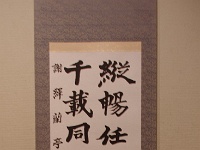 縦暢任
千載同
謝繹蘭亭